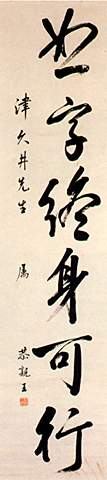 恕字終身可行
津久井先生 属 恭親王